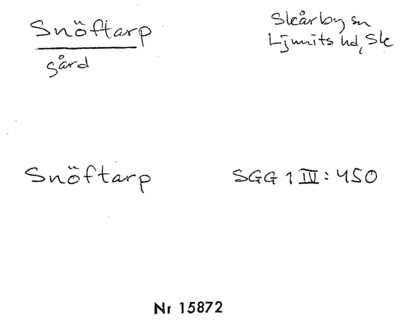 Snöftarp
gård
Skårby sn
Ljunits hd, Sk
Snöftarp
SGG 1 IV: 450
Nr 15872